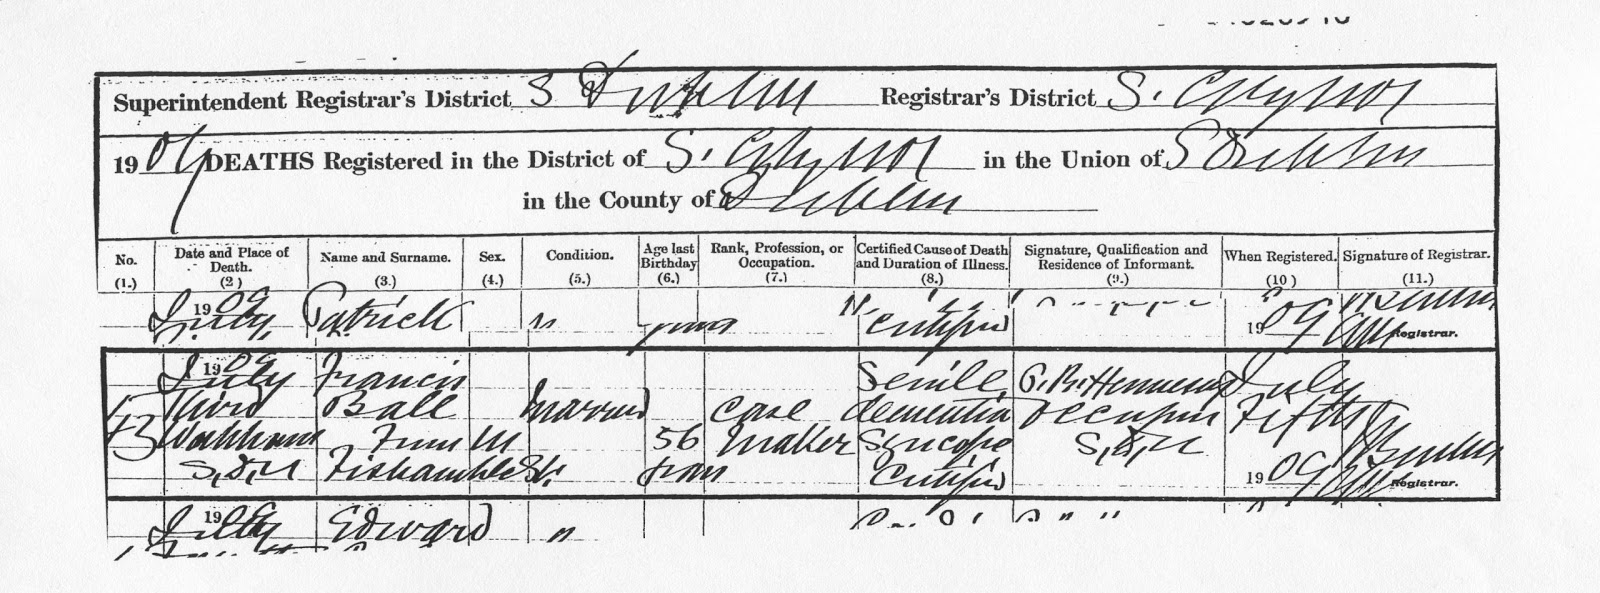 Superintendent Registrar's District S Dublin Registrar's District S. City No 1
1909 DEATHS Registered in the District of S. City No 1 in the Union of S Dublin
in the County of Dublin
No. (1.) Date and Place of Death. (2) Name and Surname. (3.) Sex. (4.) Condition. (5.) Age last Birthday (6.) Rank, Profession, or Occupation. (7.) Certified Cause of Death and Duration of Illness. (8.) Signature, Qualification and Residence of Informant. (9.) When Registered. (10) Signature of Registrar. (11.)
1909 Patrick
July years Certified 1909 Registrar.
1909
July Francis Senile P. B. Hennessy July
Third Ball Married Case dementia Occupier Fifth
43 Workhouse from M 56 Maker Syncope S, D, U
S, D, U Fishamble St. years Certified 1909 Registrar.
19
July Edward "